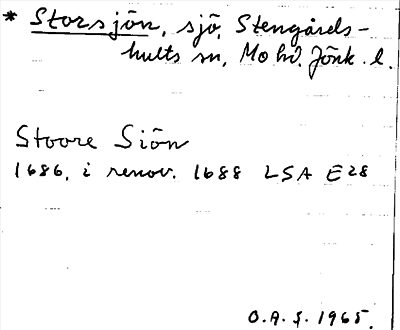 * Storsjön, sjö, Stengårds-
hults sn, Mo hd. Jönk. l.
Stoore Siön
1686, i renov. 1688 LSA E28
O.A.S. 1965.